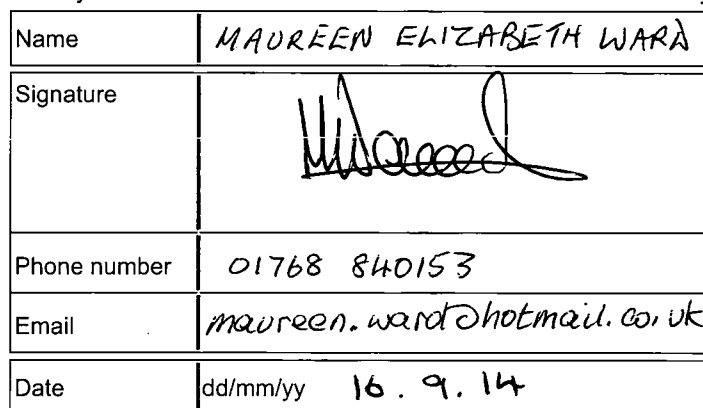 Name MAUREEN ELIZABETH WARD
Signature
Phone number 01768 840153
Email maureen.ward@hotmail.co.uk
Date dd/mm/yy 16.9.14